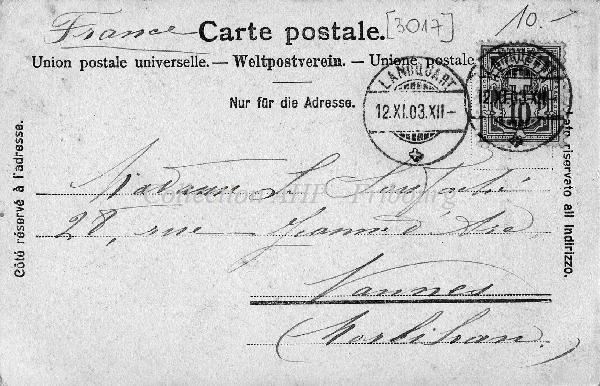 France Carte postale. [3017] 10.-
Union postale universelle. — Weltpostverein. — Unione postale
Nur für die Adresse.
LANDQUART
12.XI.03.XII-
LANDQUART
12.XI.03.XII-
10
Côté réservé à l'adresse.
Lato riservato all indirizzo.
Madame L.
28, rue Jeanne d'Arc
Vannes
(Morbihan.)
Collection IHP - Fribourg